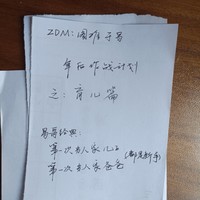 ZDM:
年后作战计划
之:育儿篇
易哥经典:
第一次当人家儿子
第一次当人家爸爸
(都是新手)